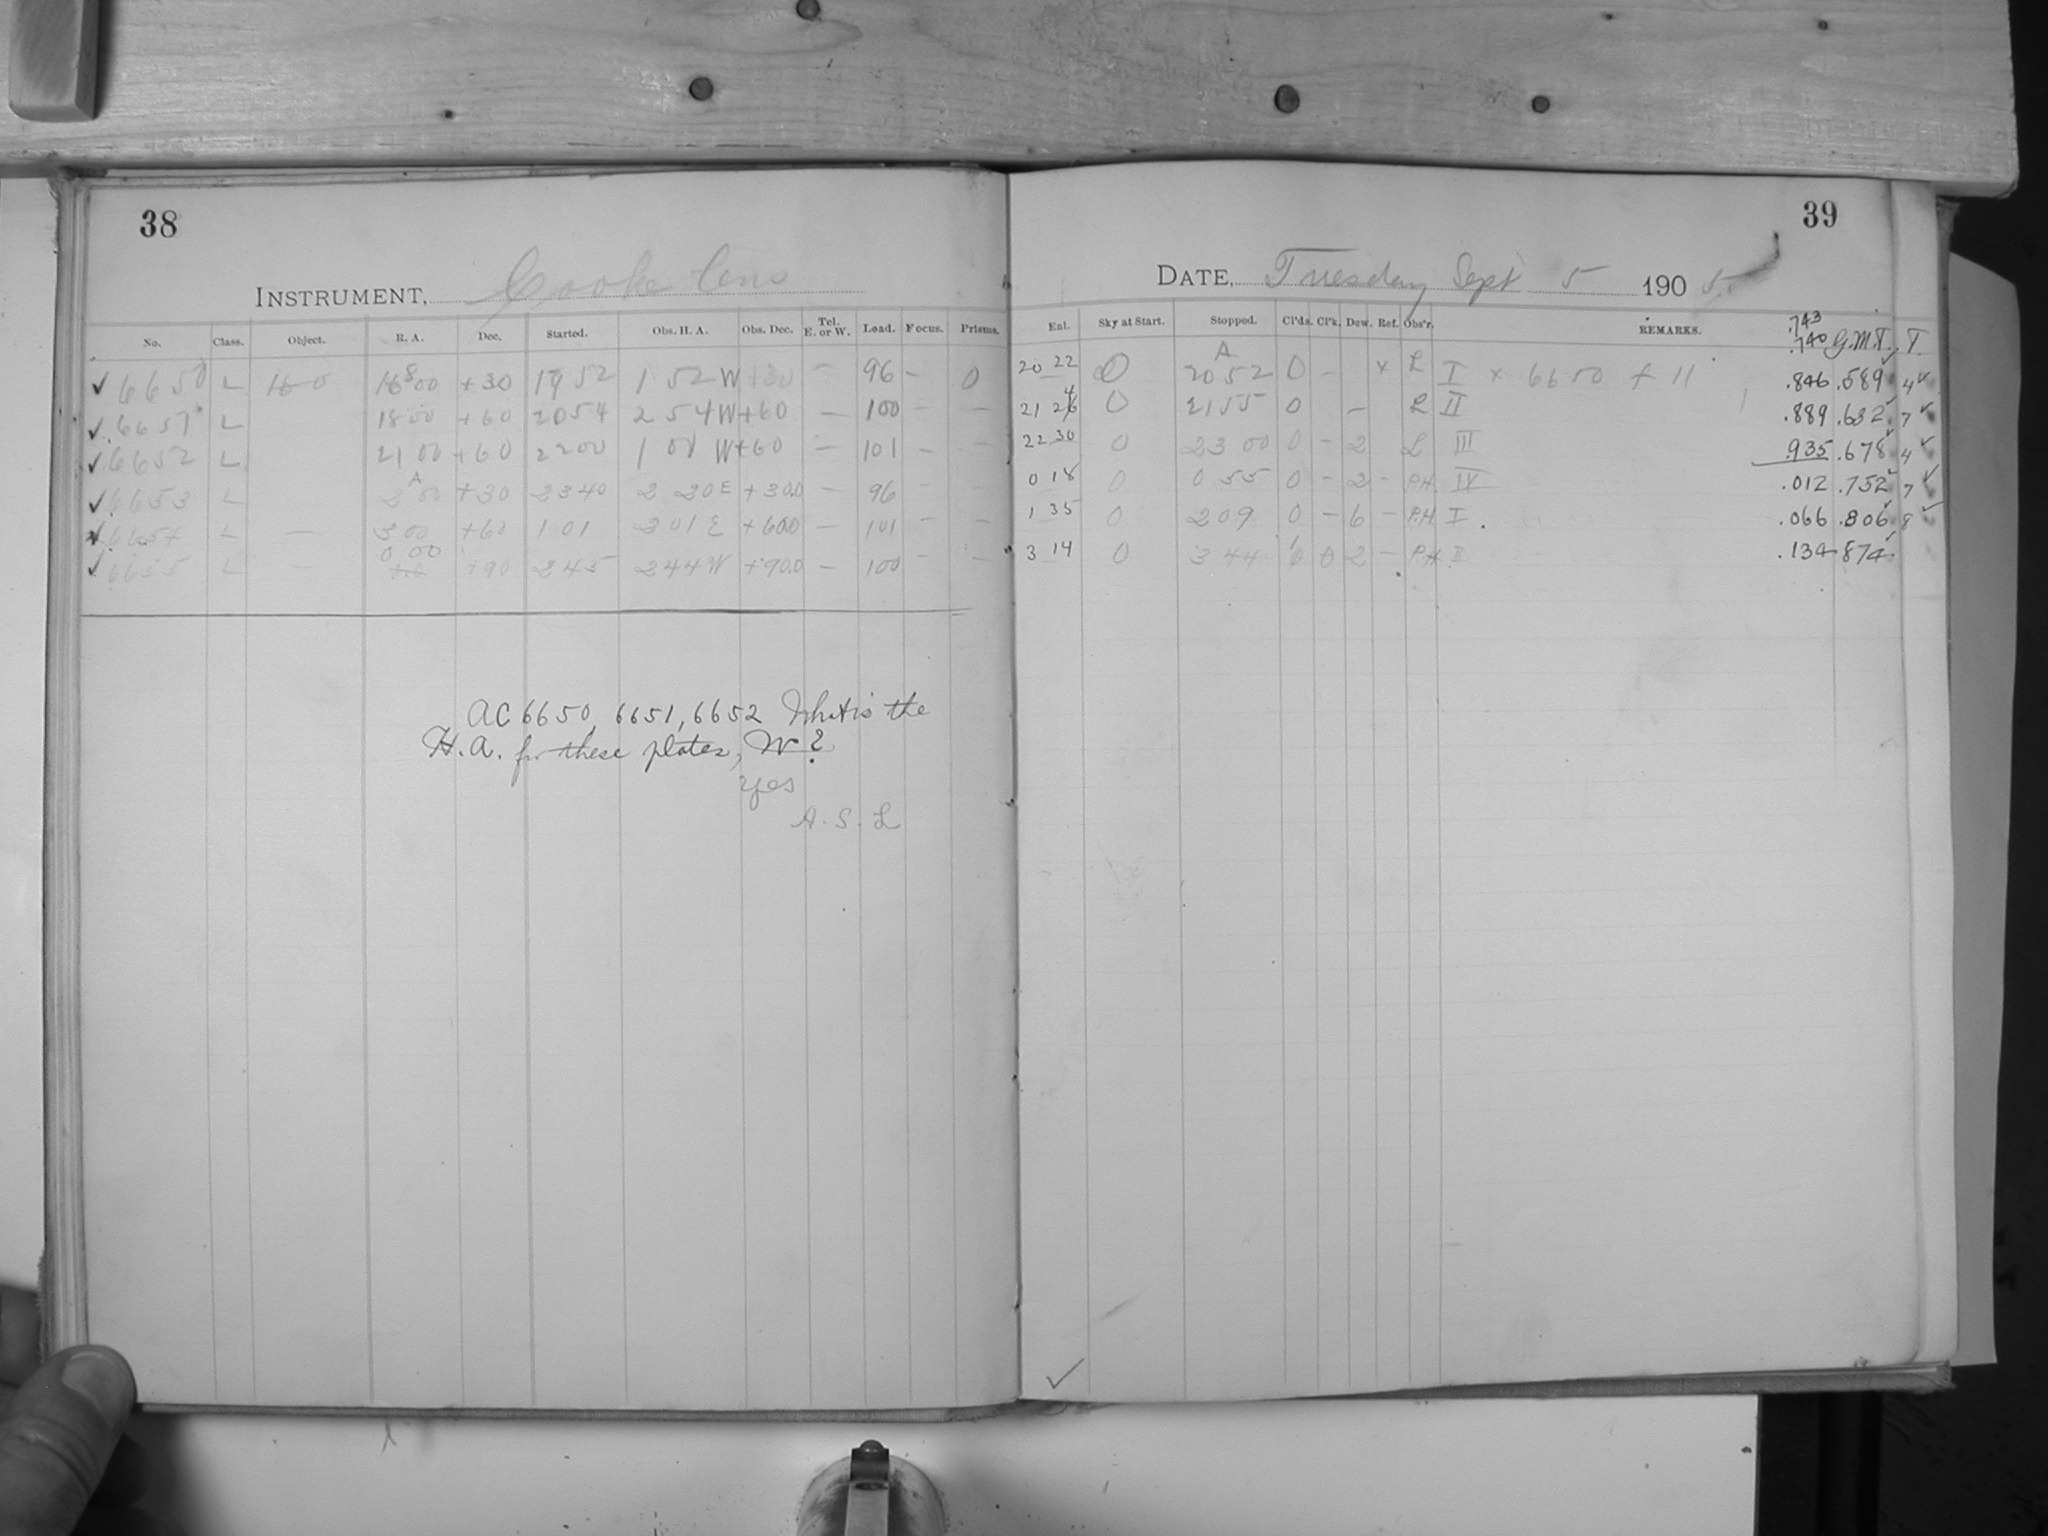 38
INSTRUMENT, Cooke lens
No. Class. Object. R. A. Dec. Started. Obs. H. A. Obs. Dec. Tel. E. or W. Load. Focus. Prisms.
✓ 6650 L 18 00 +30 19 52 1 52 W +30 – 96 – 0
✓ 6651 L 18 00 +60 20 54 2 54 W +60 – 100 – –
✓ 6652 L 21 00 +60 22 00 1 01 W +60 – 101 – –
✓ 6653 L 2 00 +30 23 40 2 20 E +30.0 – 96 – –
6654 L — 3 00 +60 1 01 2 01 E +60.0 – 101 – –
✓ 6655 L — 0 00 +90 2 45 2 44 W +90.0 – 100 – –
AC 6650, 6651, 6652 What is the
H. A. for these plates, W?
Yes
A. S. L
39
DATE, Tuesday Sept 5 1905
Enl. Sky at Start. Stopped. Cl'ds. Cl'k. Dew. Ref. Obs'r. REMARKS. .743
.740 G.M.T. T.
20 22 0 20 52 0 – × L I × 6650 + 11 .846 .589 4 ✓
21 24 0 21 55 0 – L II .889 .632 7 ✓
22 30 0 23 00 0 – 2 L III .935 .678 4 ✓
0 18 0 0 55 0 – 2 – P.H. IV .012 .752 7 ✓
1 35 0 2 09 0 – 6 – P.H. I .066 .806 8 ✓
3 14 0 3 44 0 2 – P.H. II .134 874
✓